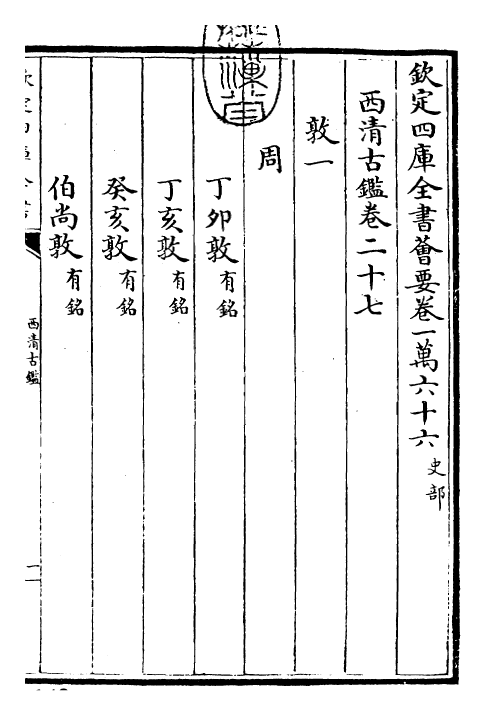 欽定四庫全書薈要卷一萬六十六 史部
西清古鑑卷二十七
敦一
周
丁卯敦 有銘
丁亥敦 有銘
癸亥敦 有銘
伯尚敦 有銘
西清古鑑